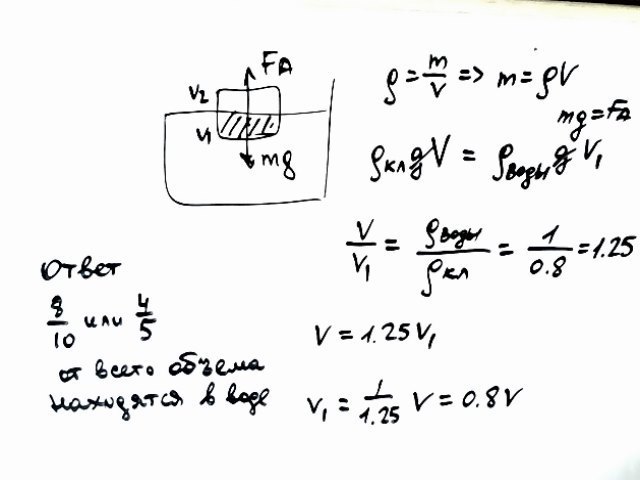 FA
V2
V1
mg
ρ = m/V => m = ρV
mg = FA
ρкл g V = ρводы g V1
V/V1 = ρводы/ρкл = 1/0.8 = 1.25
V = 1.25 V1
V1 = 1/1.25 V = 0.8 V
Ответ
8/10 или 4/5
от всего объема
находятся в воде